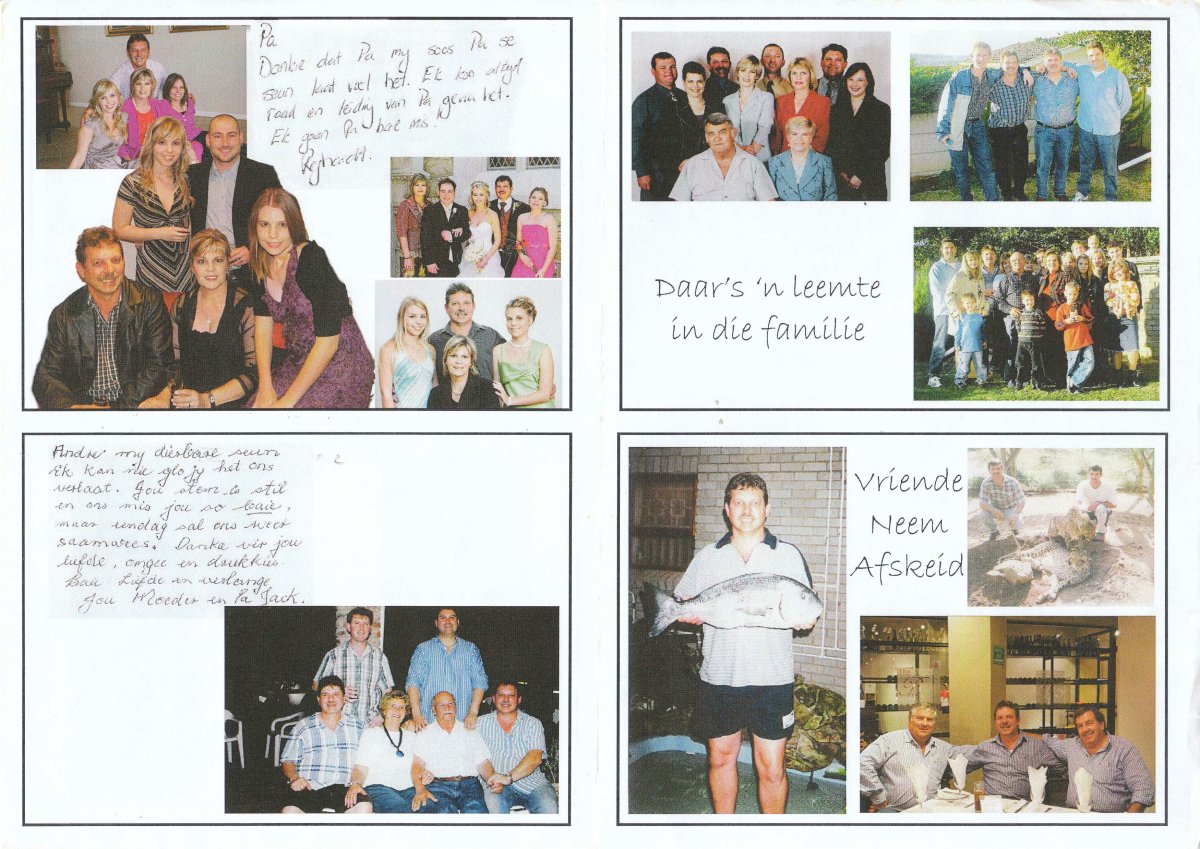 Pa
Danke dat Pa my soos Pa se
seun laat voel het. Ek kon altyd
raad en leiding van Pa
Ek gaan Pa baie mis.
Daar's 'n leemte
in die familie
Andre my dierbare seun
Ek kan nie glo jy het ons
verlaat. Jou stem is stil
en ons mis jou so baie,
maar eendag sal ons weer
saamwees. Danke vir jou
liefde, omgee en drukkies
Baie Liefde en verlange
Jou Moeder en Pa Jack.
Vriende
Neem
Afskeid